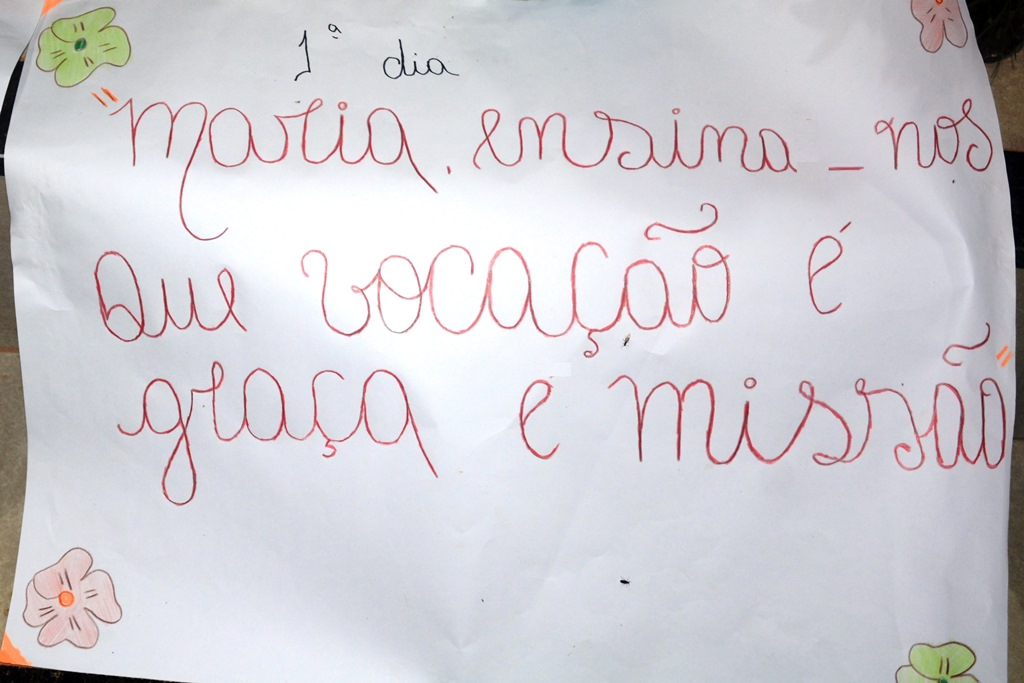 1ª dia
"Maria, ensina-nos
Que vocação é
graça e missão"